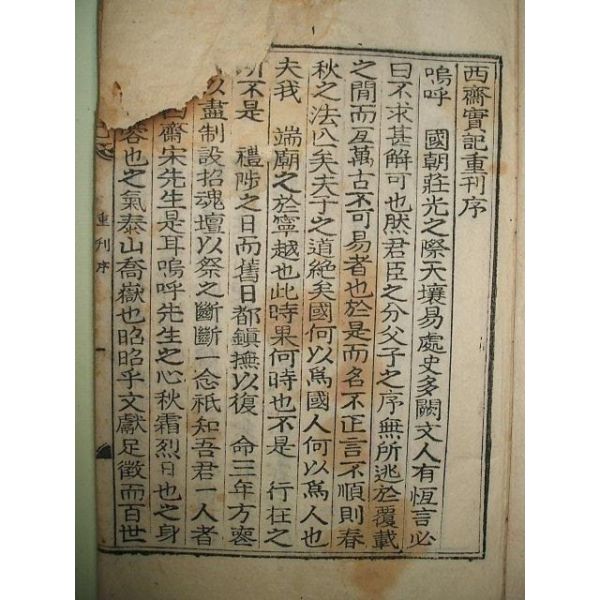 西齋實記重刊序
嗚呼 國朝莊光之際天壤易處史多闕文人有恆言必
曰不求甚解可也然君臣之分父子之序無所逃於覆載
之間而亙萬古不可易者也於是而名不正言不順則春
秋之法亾矣夫子之道絶矣國何以爲國人何以爲人也
夫我 端廟之於寧越也此時果何時也不是 行在之
所不是 禮陟之日而舊日都鎭撫以復 命三年方喪
以盡制設招魂壇以祭之斷斷一念祗知吾君一人者
西齋宋先生是耳嗚呼先生之心秋霜烈日也之身
也之氣泰山喬嶽也昭昭乎文獻足徵而百世
重刊序